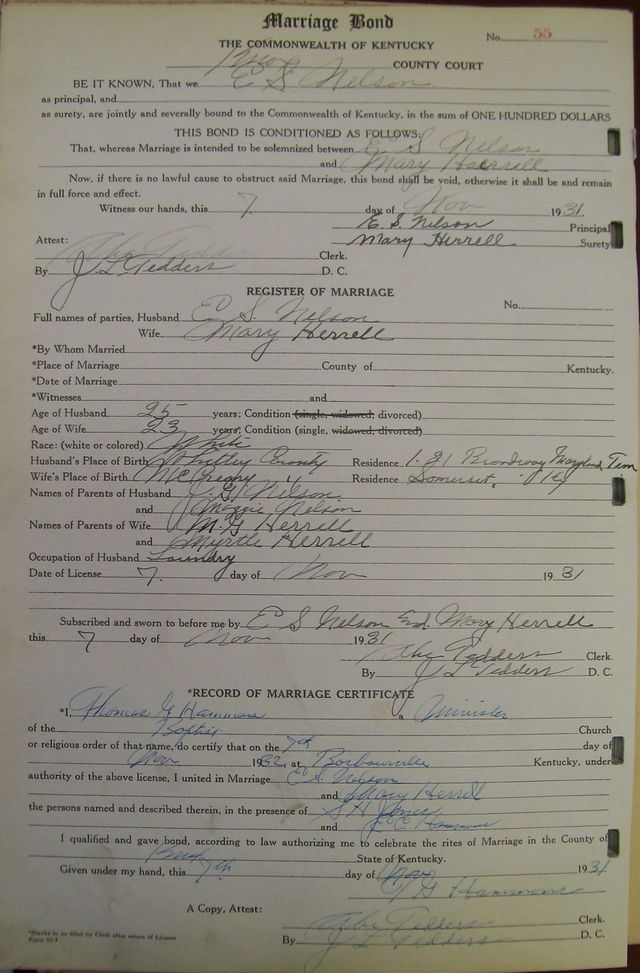 Marriage Bond
No. 55
THE COMMONWEALTH OF KENTUCKY
Knox COUNTY COURT
BE IT KNOWN, That we E S Nelson
as principal, and
as surety, are jointly and severally bound to the Commonwealth of Kentucky, in the sum of ONE HUNDRED DOLLARS
THIS BOND IS CONDITIONED AS FOLLOWS:
That, whereas Marriage is intended to be solemnized between E S Nelson
and Mary Herrell
Now, if there is no lawful cause to obstruct said Marriage, this bond shall be void, otherwise it shall be and remain
in full force and effect.
Witness our hands, this 7 day of Nov 1931
E. S. Nelson Principal
Mary Herrell Surety
Attest:
Tedders Clerk.
By J L Tedders D. C.
REGISTER OF MARRIAGE
No.
Full names of parties, Husband E. S. Nelson
Wife Mary Herrell
*By Whom Married
*Place of Marriage County of Kentucky.
*Date of Marriage
*Witnesses and
Age of Husband 25 years; Condition (single, widowed, divorced)
Age of Wife 23 years; Condition (single, widowed, divorced)
Race: (white or colored) White
Husband's Place of Birth Whitley County Residence Broadway Tenn
Wife's Place of Birth McCreary " Residence Somerset, Ky
Names of Parents of Husband J. G. Nelson
and Maggie Nelson
Names of Parents of Wife M. G Herrell
and Myrtle Herrell
Occupation of Husband Laundry
Date of License 7. day of Nov 1931
Subscribed and sworn to before me by E S Nelson and Mary Herrell
this 7 day of Nov 1931
Tedders Clerk.
By J L Tedders D. C.
*RECORD OF MARRIAGE CERTIFICATE
*I, Thomas G Hammons a Minister
of the Baptist Church
or religious order of that name, do certify that on the 7th day of
Nov 1932, at Barbourville Kentucky, under
authority of the above license, I united in Marriage E S. Nelson
and Mary Herrell
the persons named and described therein, in the presence of S H Jones
and Hammons
I qualified and gave bond, according to law authorizing me to celebrate the rites of Marriage in the County of
Knox State of Kentucky.
Given under my hand, this 7th day of Nov 1931
T G Hammons
A Copy, Attest:
Tedders Clerk.
By J L Tedders D. C.
*Blanks to be filled by Clerk after return of License